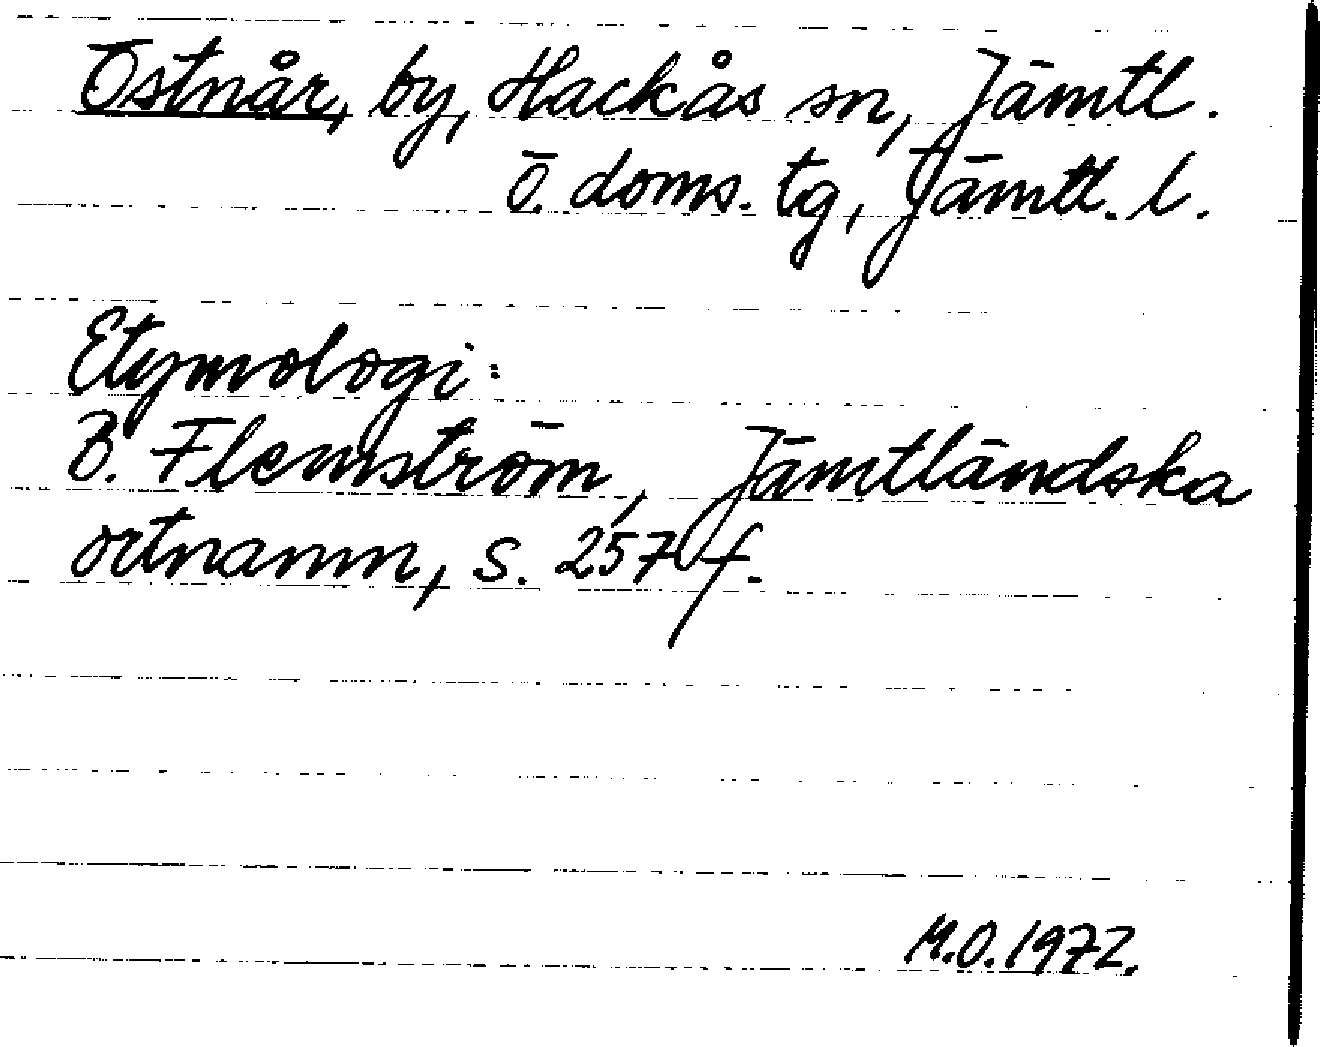 Östnår, by, Hackås sn, Jämtl.
ö. doms. tg, Jämtl. l.
Etymologi:
B. Flemström, Jämtländska
ortnamn, s. 257 f.
M.O. 1972.